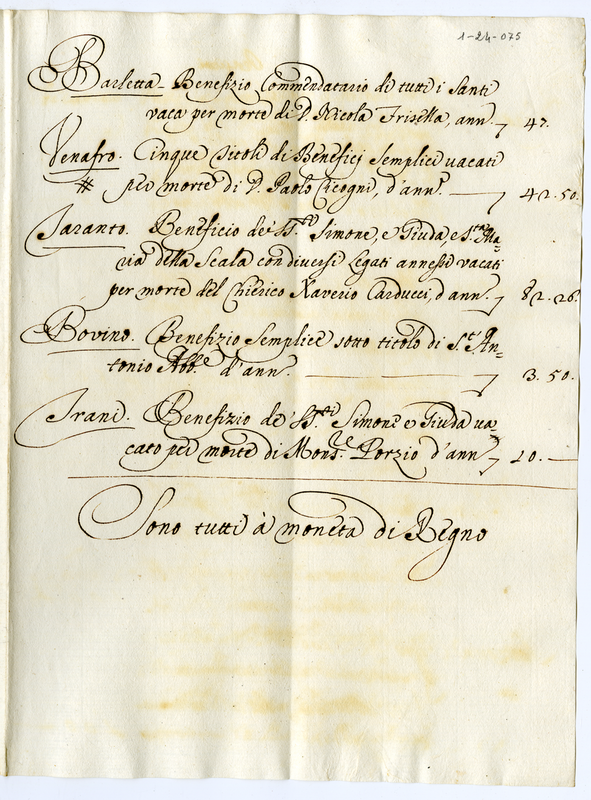 1-24-075
Barletta - Benefizio Commendatario di tutti i Santi
vaca per morte di D. Nicola Frisella, ann. 47.
Venafro. Cinque titoli di Beneficj Semplici vacati
# per morte di D. Paolo Cicogni, d'ann.ⁱ — 42.50.
Taranto. Beneficio de' SS.ᵗⁱ Simone, e Giuda, e S.ᵗᵃ Ma=
ria della Scala con diversi Legati annessi vacati
per morte del Chierico Xaverio Carducci, d'ann. 82.26.
Bovino. Benefizio Semplice sotto titolo di S.ᵗ An=
tonio Abb.ᵉ d'ann. — 3.50.
Trani. Benefizio de' SS.ᵗⁱ Simone e Giuda va=
cato per morte di Mons.ʳᵉ Porzio d'ann. 10. —
Sono tutti à moneta di Regno